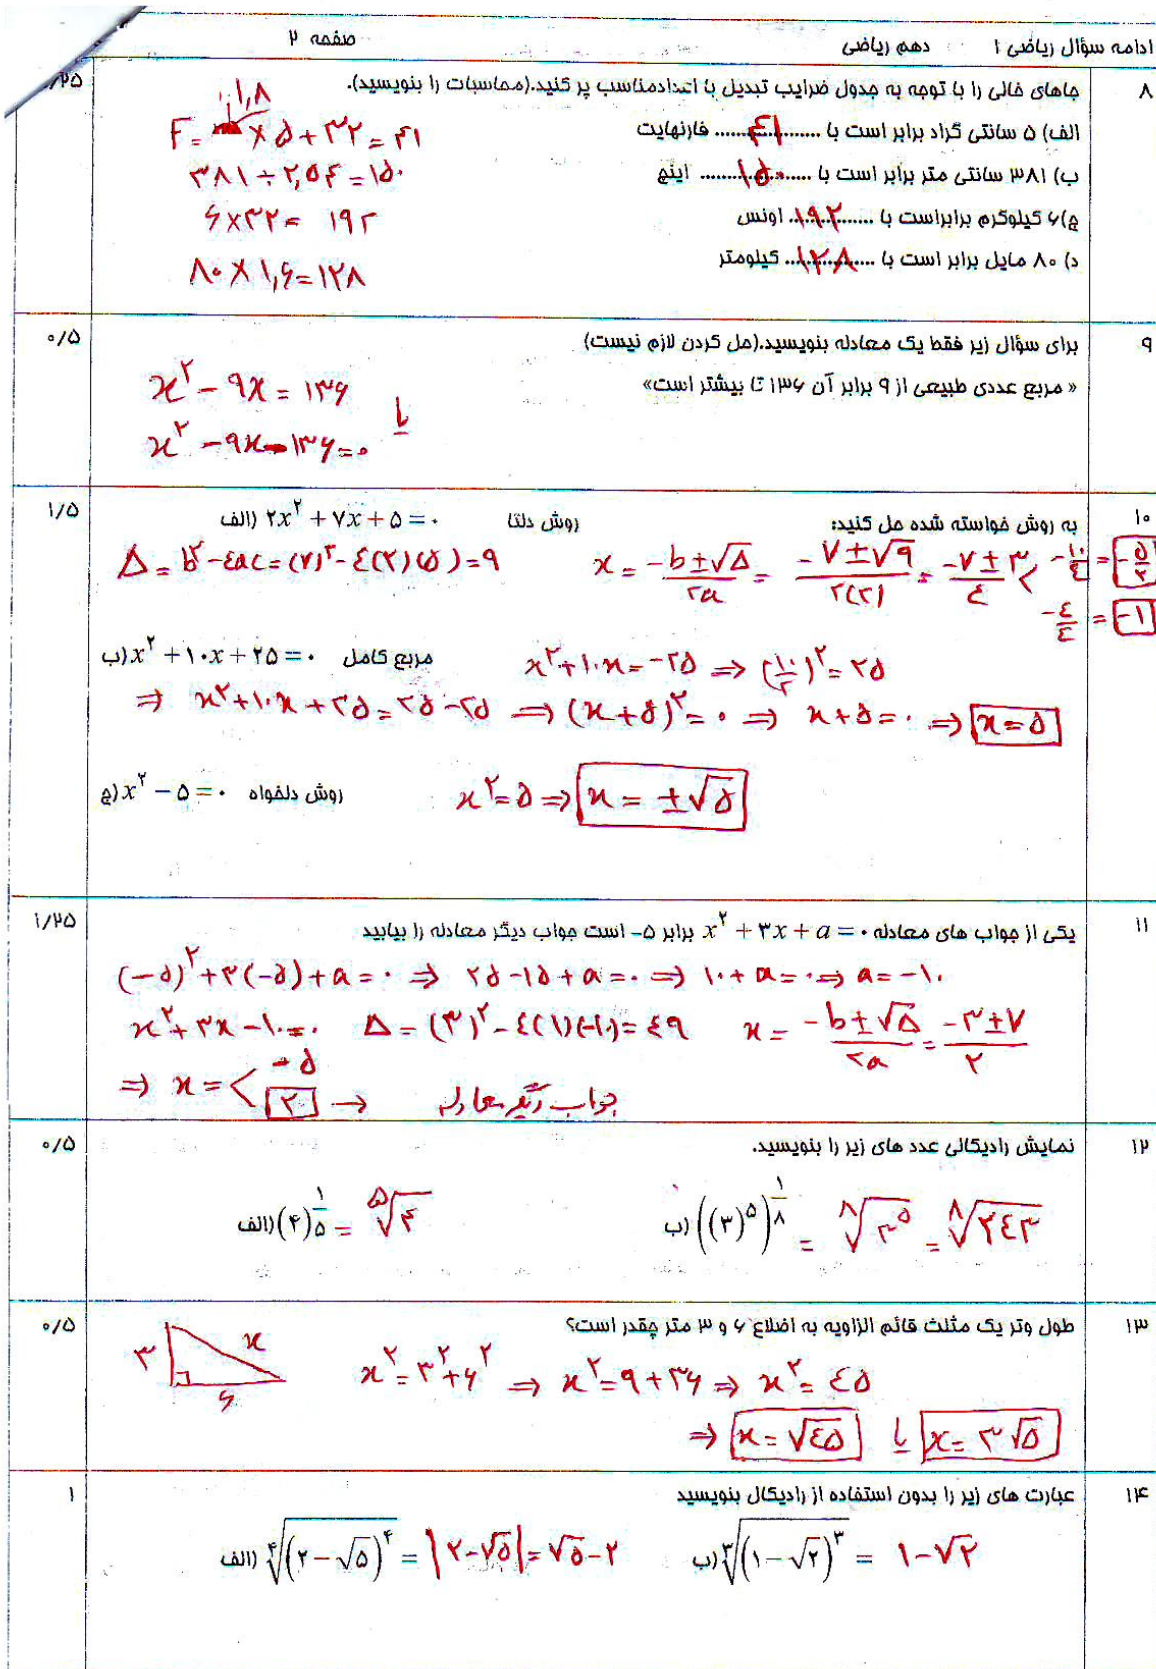 ادامه سؤال ریاضی ۱ دهم ریاضی صفحه ۲
۸ جاهای خالی را با توجه به جدول ضرایب تبدیل با اعدادمناسب پر کنید.(محاسبات را بنویسید).
الف) ۵ سانتی گراد برابر است با ....۴۱.... فارنهایت F = ۱,۸ × ۵ + ۳۲ = ۴۱
ب) ۳۸۱ سانتی متر برابر است با ....۱۵۰.... اینچ ۳۸۱ ÷ ۲,۵۴ = ۱۵۰
ج) ۶ کیلوگرم برابراست با ....۱۹۲.... اونس ۶ × ۳۲ = ۱۹۲
د) ۸۰ مایل برابر است با ....۱۲۸.... کیلومتر ۸۰ × ۱,۶ = ۱۲۸
۹ برای سؤال زیر فقط یک معادله بنویسید.(حل کردن لازم نیست) ۰/۵
« مربع عددی طبیعی از ۹ برابر آن ۱۳۶ تا بیشتر است» x² - ۹x = ۱۳۶
یا
x² - ۹x - ۱۳۶ = ۰
۱۰ به روش خواسته شده حل کنید: روش دلتا ۲x² + ۷x + ۵ = ۰ (الف ۱/۵
Δ = b² - ٤ac = (۷)² - ٤(۲)(۵) = ۹ x = (-b ± √Δ)/۲a = (-۷ ± √۹)/۲(۲) = (-۷ ± ۳)/٤ < -۱۰/٤ = -۵/۲
-٤/٤ = -۱
ب) x² + ۱۰x + ۲۵ = ۰ مربع کامل x² + ۱۰x = -۲۵ ⇒ (۱۰/۲)² = ۲۵
⇒ x² + ۱۰x + ۲۵ = ۲۵ - ۲۵ ⇒ (x + ۵)² = ۰ ⇒ x + ۵ = ۰ ⇒ x = ۵
ج) x² - ۵ = ۰ روش دلخواه x² = ۵ ⇒ x = ±√۵
۱۱ یکی از جواب های معادله x² + ۳x + a = ۰ برابر ۵- است جواب دیگر معادله را بیابید ۱/۲۵
(-۵)² + ۳(-۵) + a = ۰ ⇒ ۲۵ - ۱۵ + a = ۰ ⇒ ۱۰ + a = ۰ ⇒ a = -۱۰
x² + ۳x - ۱۰ = ۰ Δ = (۳)² - ٤(۱)(-۱۰) = ٤۹ x = (-b ± √Δ)/۲a = (-۳ ± ۷)/۲
⇒ x = < -۵
۲ → جواب دیگر معادله
۱۲ نمایش رادیکالی عدد های زیر را بنویسید. ۰/۵
الف) (۴)^(۱/۵) = ⁵√۴ ب) ((۳)^۵)^(۱/۸) = ⁸√۳⁵ = ⁸√۲٤۳
۱۳ طول وتر یک مثلث قائم الزاویه به اضلاع ۶ و ۳ متر چقدر است؟ ۰/۵
۳ x ۶ x² = ۳² + ۶² ⇒ x² = ۹ + ۳۶ ⇒ x² = ٤۵
⇒ x = √٤۵ یا x = ۳√۵
۱۴ عبارت های زیر را بدون استفاده از رادیکال بنویسید ۱
الف) ⁴√(۲ - √۵)⁴ = |۲ - √۵| = √۵ - ۲ ب) ³√(۱ - √۲)³ = ۱ - √۲